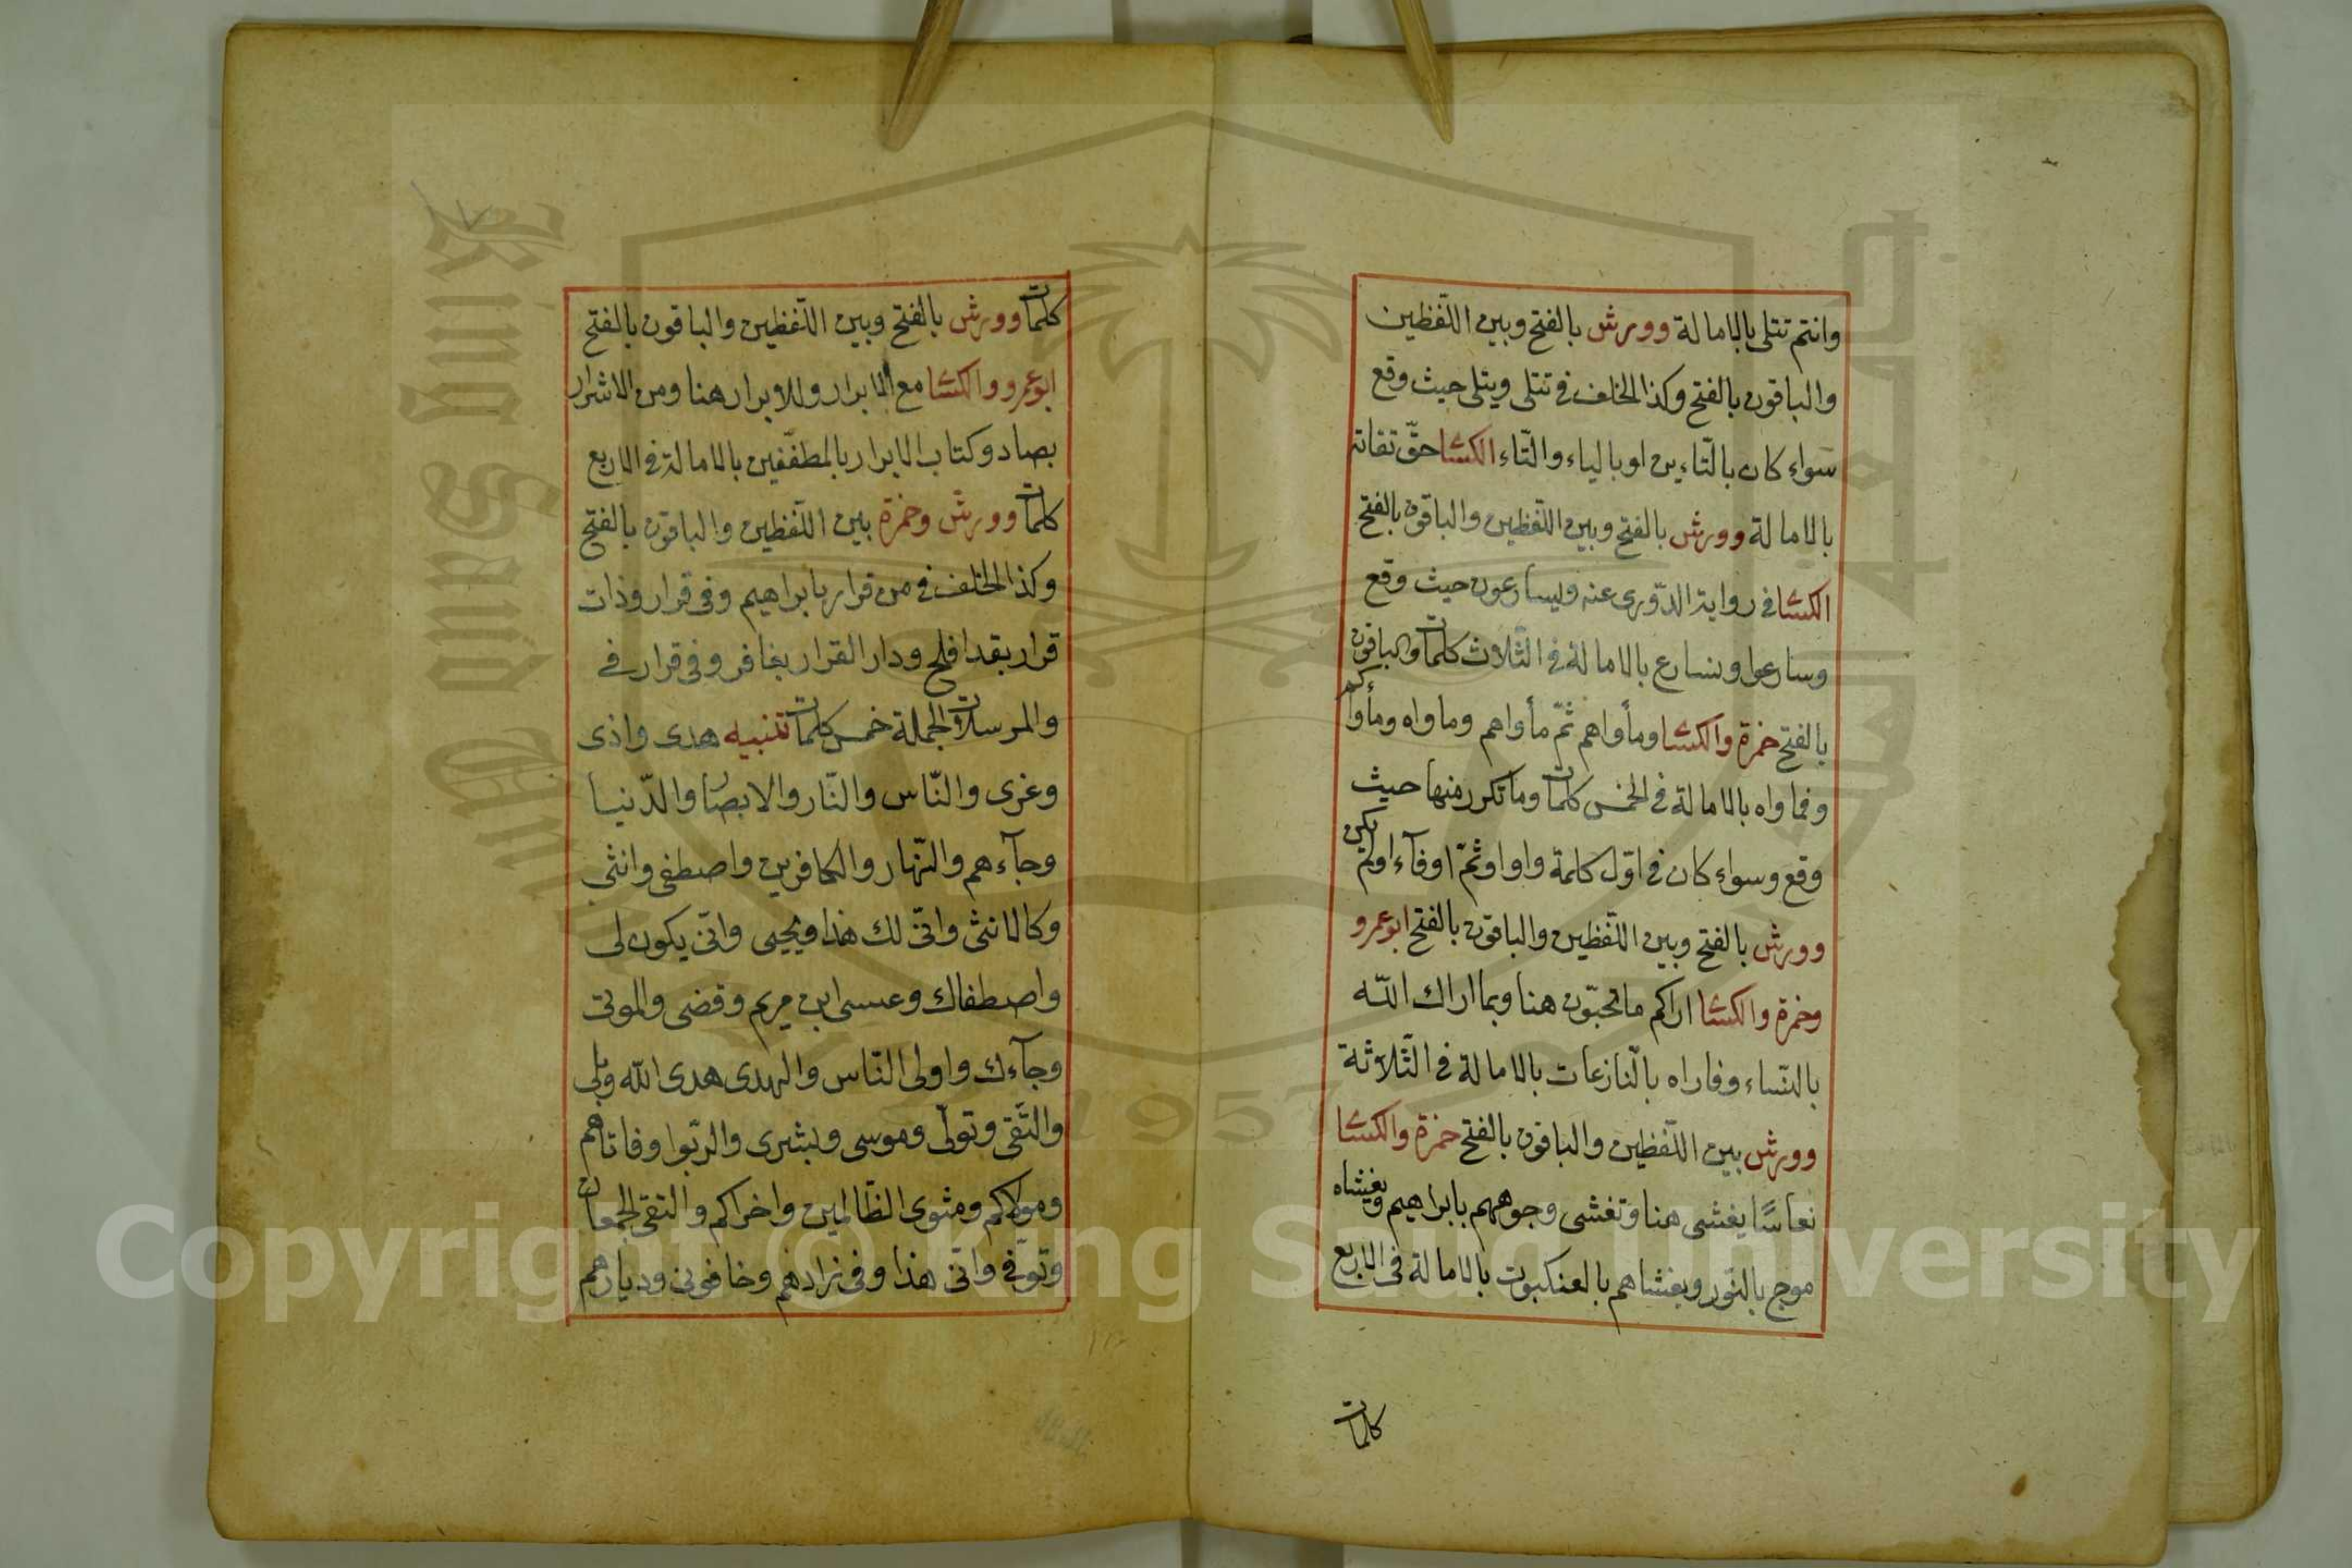 وانتم تتلى بالامالة وورش بالفتح وبين اللّفظين
والباقون بالفتح وكذا الخلف في تتلى ويتلى حيث وقع
سواء كان بالتّاءين او بالياء والتّاء الكسا حقّ تقاته
بالامالة وورش بالفتح وبين اللّفظين والباقون بالفتح
الكسا في رواية الدّورى عنه ويسارعون حيث وقع
وسارعوا ونسارع بالامالة في الثّلاث كلمات والباقون
بالفتح حمزة والكسا ومأواهم ثمّ مأواهم وماواه ومأواكم
وفماواه بالامالة في الخمس كلمات وما تكرر منها حيث
وقع وسواء كان في اوّل كلمة واو او ثمّ او فآء او لم يكن
وورش بالفتح وبين اللّفظين والباقون بالفتح ابو عمرو
وحمزة والكسا اراكم ما تحبّون هنا وبما اراك اللّه
بالنّساء وفاراه بالنّازعات بالامالة في الثّلاثة
وورش بين اللّفظين والباقون بالفتح حمزة والكسا
نعاسًا يغشى هنا وتغشى وجوههم بابراهيم ويغشاه
موج بالنّور ويغشاهم بالعنكبوت بالامالة فى الاربع
كلمات
كلمات وورش بالفتح وبين اللّفظين والباقون بالفتح
ابو عمرو والكسا مع الابرار وللابرار هنا ومن الاشرار
بصاد وكتاب الابرار بالمطفّفين بالامالة في الاربع
كلمات وورش وحمزة بين اللّفظين والباقون بالفتح
وكذا الخلف في من قرار بابراهيم وفى قرار وذات
قرار بقد افلح ودار القرار بغافر وفى قرار في
والمرسلات الجملة خمس كلمات تنبيه هدى واذى
وغزى والنّاس والنّار والابصار والدّنيا
وجآءهم والنّهار والكافرين واصطفى وانثى
وكالانثى وانّى لك هذا ويحيى وانّى يكون لى
واصطفاك وعيسى ابن مريم وقضى والموتى
وجآءك واولى النّاس والهدى هدى اللّه وبلى
والتّقى وتولّى وموسى وبشرى والرّبوا وفاتاهم
ومولاكم ومثوى الظّالمين واخراكم والتقى الجمعان
وتوفّى وانّى هذا وفى زادهم وخافون وديارهم
Copyright © King Saud University
King Saud University
1957